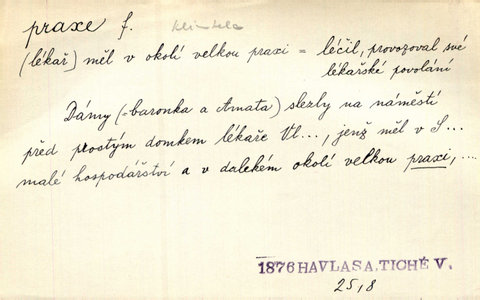 praxe f. klientela
(lékař) měl v okolí velkou praxi = léčil, provozoval své
lékařské povolání
Dámy (= baronka a Amata) slezly na náměstí
před prostým domkem lékaře Vl..., jenž měl v S...
malé hospodářství a v dalekém okolí velkou praxi,...
1876 HAVLASA, TICHÉ V.
25,8